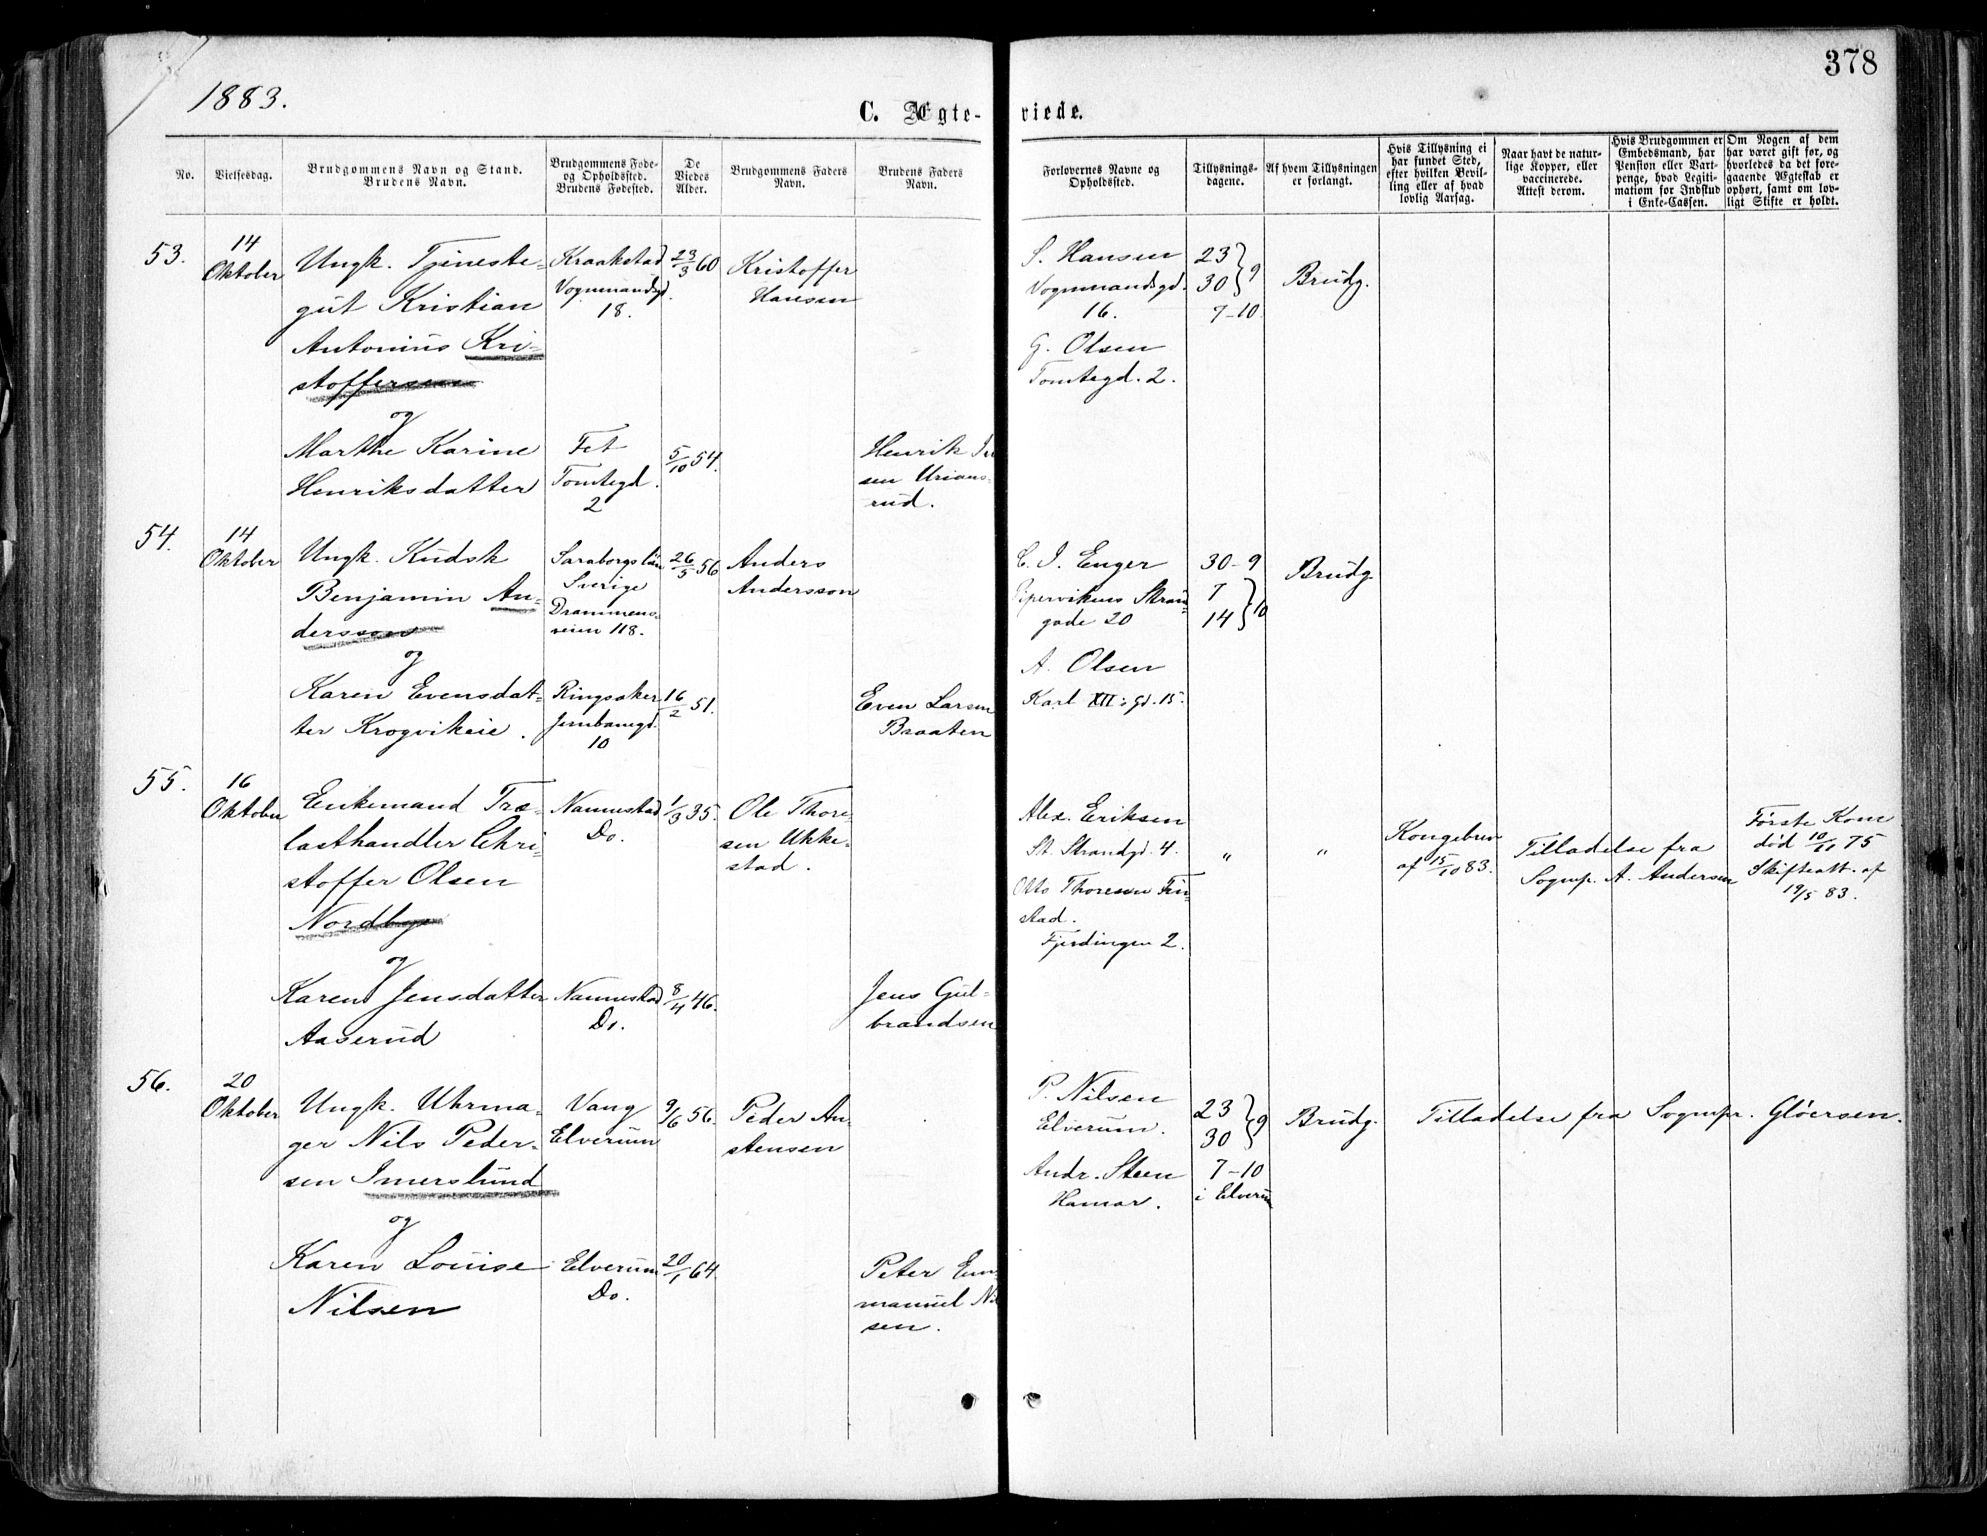 378
1883.
C. Ægte-
viede.
No.
Vielsesdag.
Brudgommens Navn og Stand.
Brudens Navn.
Brudgommens Føde-
og Opholdssted.
Brudens Fødested.
De
Viedes
Alder.
Brudgommens Faders
Navn.
Brudens Faders
Navn.
Forlovernes Navne og
Opholdssted.
Tillysnings-
dagene.
Af hvem Tillysningen
er forlangt.
Hvis Tillysning ei
har fundet Sted,
efter hvilken Bevil-
ling eller af hvad
lovlig Aarsag.
Naar havt de natur-
lige Kopper, eller
vaccinerede.
Attest derom.
Hvis Brudgommen er
Embedsmand, har
Pension eller Vart-
penge, hvad Legiti-
mation for Indskud
i Enke-Cassen.
Om Nogen af dem
har været gift før, og
hvorledes da det fore-
gaaende Ægteskab er
ophørt, samt om lov-
ligt Skifte er holdt.
53.
14
Oktober
Ungk. Tjeneste-
gut Kristian
Antonius Kri-
stoffersen
og
Marthe Karine
Henriksdatter
Kraakstad
Vognmandsgd.
18.
Fet
Tomtegd.
2
23/3 60
5/10 54.
Kristoffer
Hansen
Henrik
sen Urians-
rud.
S. Hansen
Vognmandsgd.
16.
G. Olsen
Tomtegd. 2.
23
30 } 9
7-10.
Brudg.
54.
14
Oktober
Ungk. Kudsk
Benjamin An-
dersson
og
Karen Evensdat-
ter Krogvikeie.
Saraborgslän
Sverige
Drammens-
veien 118.
Ringsaker
Jernbanegd.
10
26/5 56
16/2 51.
Anders
Andersson
Even Larsen
Braaten
C. J. Enger
Pipervikens Stran-
gade 20
A. Olsen
Karl XII: gd. 15.
30-9
7
14 } 10
Brudg.
55.
16
Oktober
Enkemand Træ-
lasthandler Chri-
stoffer Olsen
Nordbye
og
Karen Jensdatter
Aaserud
Nannestad
Do.
Nannestad
Do.
1/3 35.
8/4 46.
Ole Thore-
sen Ukke-
stad.
Jens Gul-
brandsen
Alex. Eriksen
St. Strandgd. 4.
Otto Thoresen Fin-
stad.
Fjerdingen 2.
"
"
Kongebrev
af 15/10 83.
Tilladelse fra
Sognep. A. Andersen
Første Kone
død 10/11 75
Skifteatt. af
19/5 83.
56.
20
Oktober
Ungk. Uhrma-
ger Nils Peder-
sen Imerslund
og
Karen Louise
Nilsen
Vang
Elverum
Elverum
Do.
9/6 56.
20/1 64.
Peder An-
stensen
Peter Em-
manuel Nil
sen.
P. Nilsen
Elverum.
Andr. Steen
Hamar.
23
30 } 9
7-10
i Elverum
Brudg.
Tilladelse fra Sognepr. Gløersen.